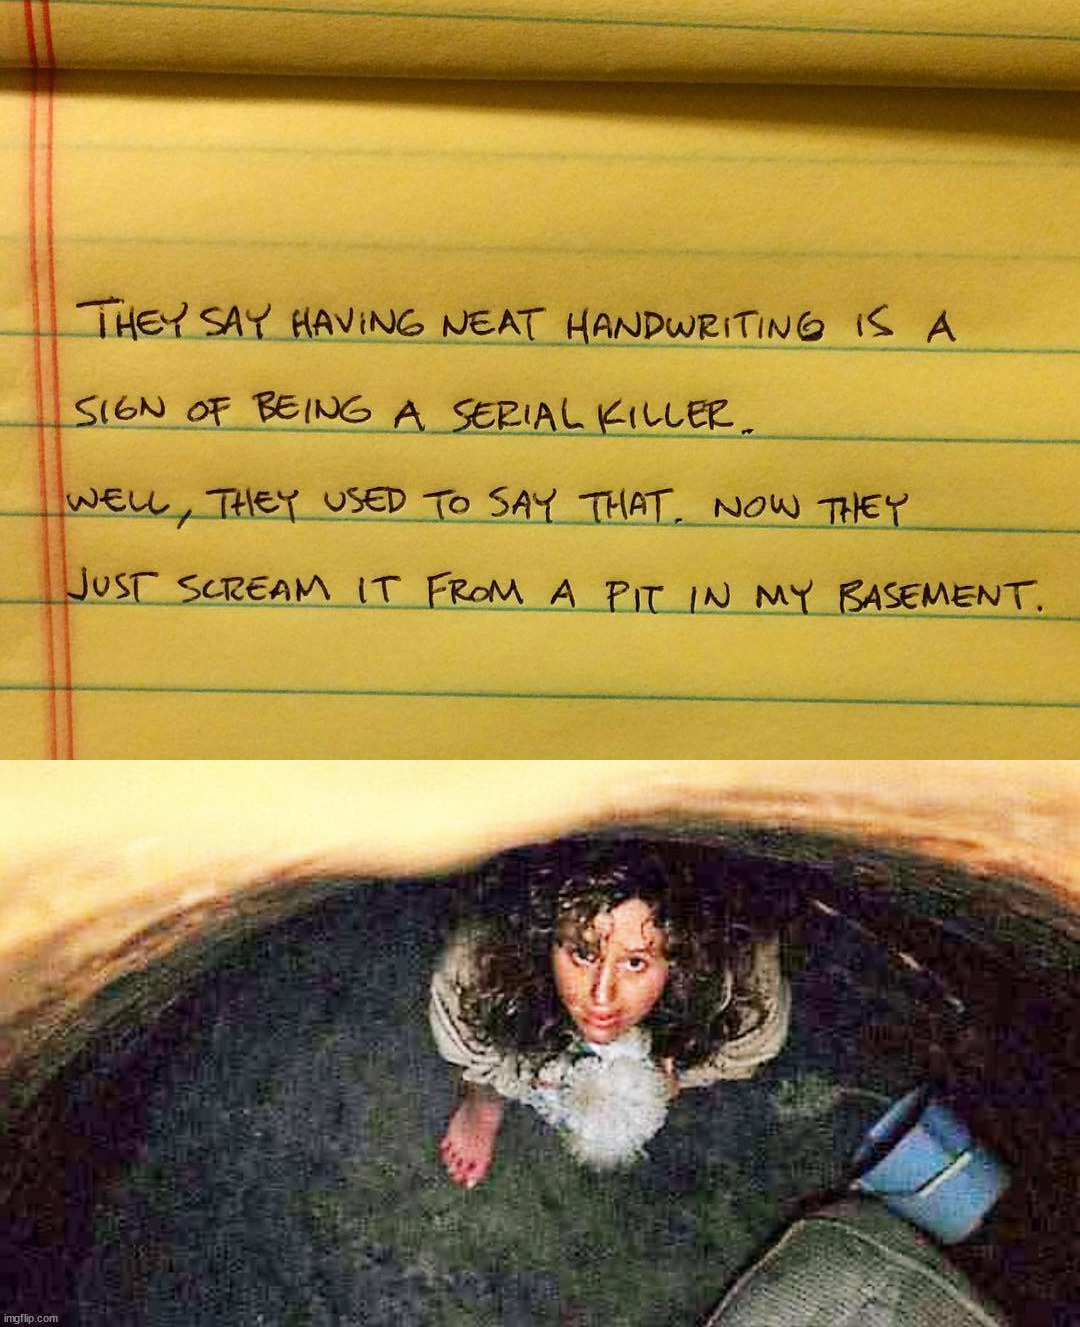 THEY SAY HAVING NEAT HANDWRITING IS A
SIGN OF BEING A SERIAL KILLER.
WELL, THEY USED TO SAY THAT. NOW THEY
JUST SCREAM IT FROM A PIT IN MY BASEMENT.
imgflip.com